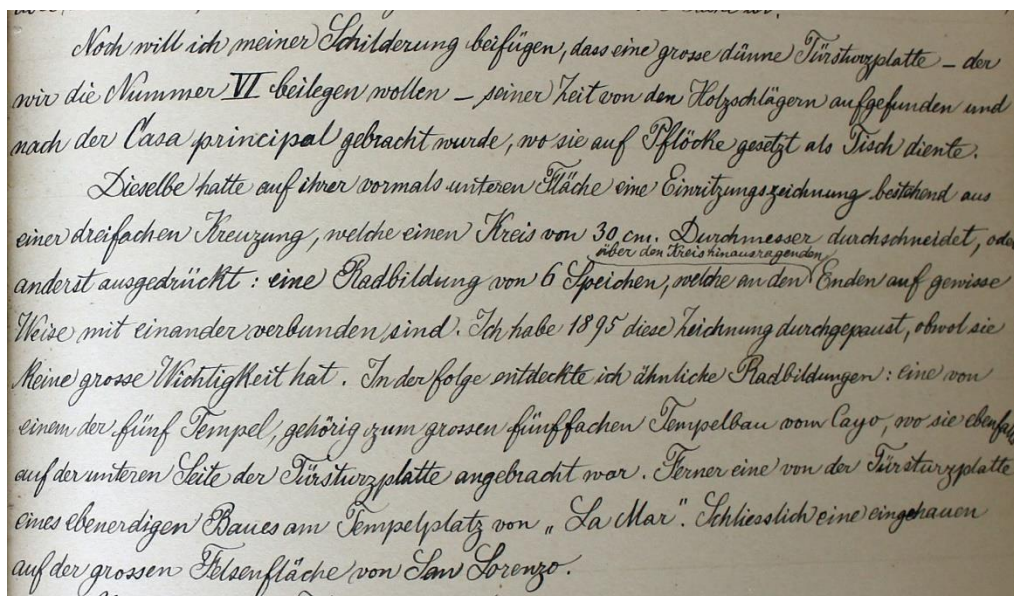 Noch will ich meiner Schilderung beifügen, dass eine grosse dünne Türsturzplatte – der
wir die Nummer VI beilegen wollen – seiner Zeit von den Holzschlägern aufgefunden und
nach der Casa principal gebracht wurde, wo sie auf Pflöcke gesetzt als Tisch diente.
Dieselbe hatte auf ihrer vormals unteren Fläche eine Einritzungszeichnung bestehend aus
einer dreifachen Kreuzung, welche einen Kreis von 30 cm. Durchmesser durchschneidet, oder
über den Kreis hinausragenden
anderst ausgedrückt : eine Radbildung von 6 Speichen, welche an den Enden auf gewisse
Weise mit einander verbunden sind. Ich habe 1895 diese Zeichnung durchgepaust, obwol sie
keine grosse Wichtigkeit hat. In der folge entdeckte ich ähnliche Radbildungen : eine von
einem der fünf Tempel, gehörig zum grossen fünffachen Tempelbau vom Cayo, wo sie ebenfalls
auf der unteren Seite der Türsturzplatte angebracht war. Ferner eine von der Türsturzplatte
eines ebenerdigen Baues am Tempelplatz von „La Mar". Schliesslich eine eingehauen
auf der grossen Felsenfläche von San Lorenzo.